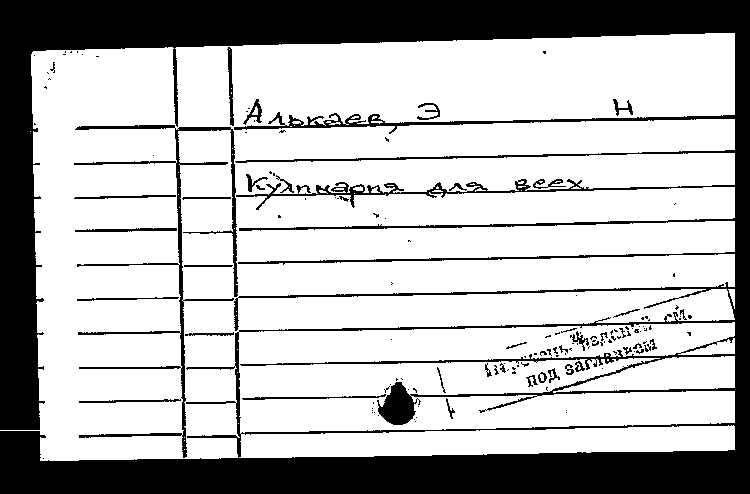 Алькаев, Э Н
Кулинария для всех
Перечень изданий см.
под заглавием